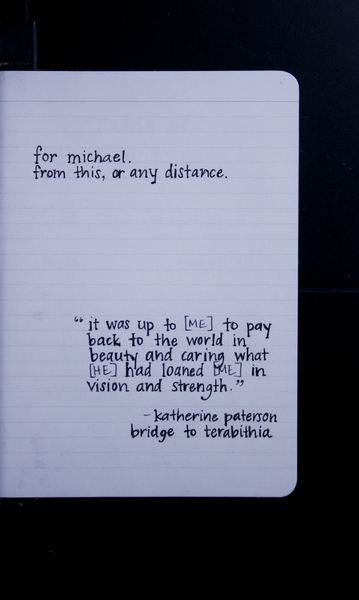 for michael.
from this, or any distance.
"it was up to [ME] to pay
back to the world in
beauty and caring what
[HE] had loaned [ME] in
vision and strength."
- katherine paterson
bridge to terabithia